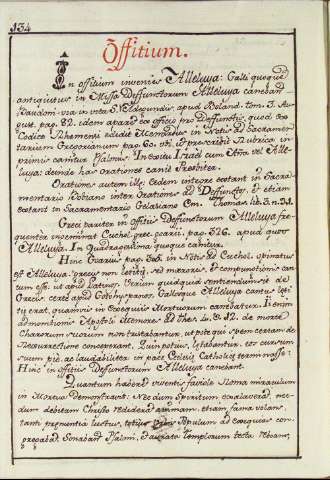 134
Offitium.
In offitium invenies Alleluya: Galli quoque
antiquitus in Missa Deffunctorum Alleluya canebant
in vita S. apud Boland. tom. 3. Au-
gust. pag. 82. idem apare ex officio pro Deffunctis, quod ex
Codice Rhemensi edidit Menardus in Notis ad Sacramen-
tarium Gregorianum pag. 60.
primus canitur Psalmus, In exitu Israel cum Alle-
luya: deinde has orationes canit Presbiter.
Orationes autem ille; eedem integre extant in Sacra-
mentario inter Orationes ad Deffunctos, et etiam
extant in Sacramentario Gelasiano Em. Thomas. lib. 3. n. 91.
Greci pariter in offitiis Deffunctorum Alleluya fre-
quenter inseminat Euchol. grec. pag. 526. apud quos
Alleluya. In Quadragesima quoque canitur.
Hinc Goarius pag. 205. in Notis ad Euchol. opinatus
est Alleluya: grecis non letitie, sed meroris, et compunctionis can-
tum esse: ut apud Latinos. Verum quidquid sentiendum sit de
Grecis, certe apud Gothyspanos, Gallosque Alleluya cantus leti-
tie erat, quamvis in Exequiis Mortuorum canebatur. Ii enim
admonitione Apostoli Memores ad Thes. 4. 12. de morte
Charorum suorum non tristabantur, utpote qui spem certam de
Resurrectione conceperant. Quin potius, letabantur, eos cursum
suum pie, ac laudabiliter in pace Eccles. Catholice terminasse:
Hinc in offitiis Deffunctorum Alleluya canebant.
Quantum habere viventis Fabiole Roma miraculum
in Mortua Demonstravit. Nec dum Spiritum exalaverat, nec-
dum debitam Christo reddiderat animam, etiam fama volans,
tanti prenuntia luctus, totius Populum ad exequias con-
gregabat, Sonabant Psalmi, et aurata Templorum tecta reboans,